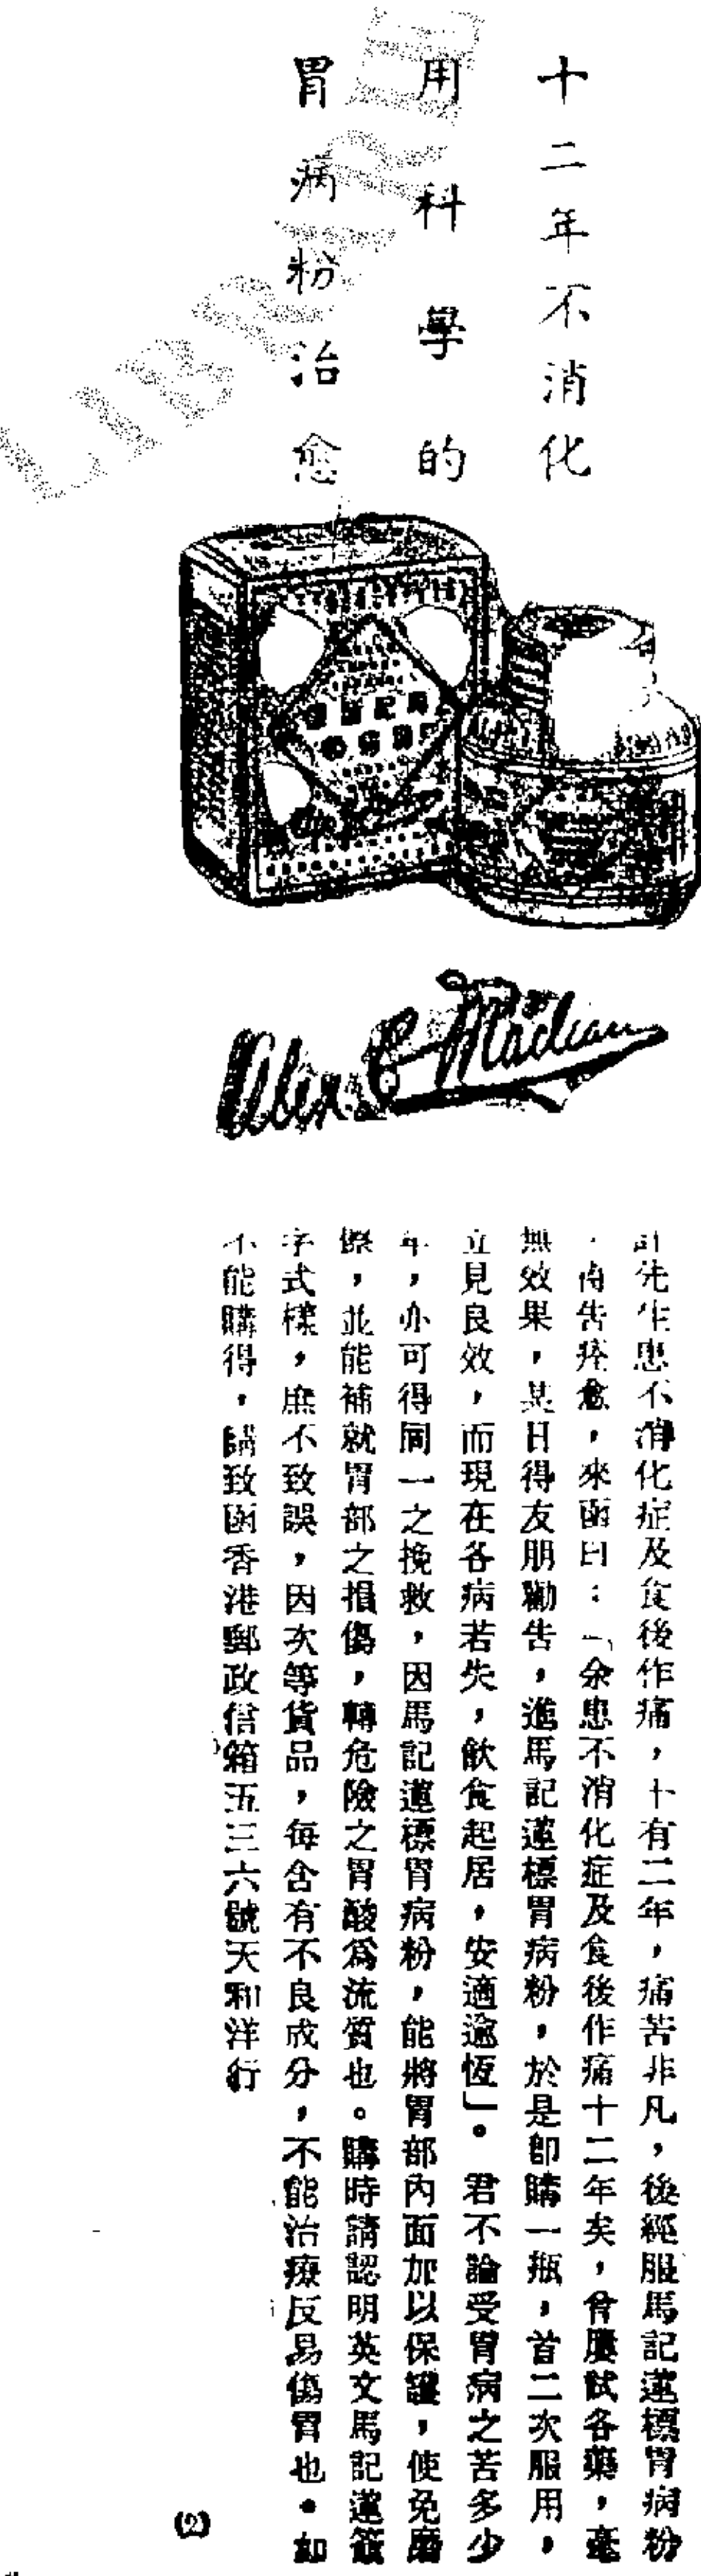 十二年不消化
用科學的
胃病粉治愈
LIBR
Alex C Maclean
先生患不消化症及食後作痛，十有二年，痛苦非凡，後經服馬記蓮標胃病粉
，而告痊愈，來函曰：「余患不消化症及食後作痛十二年矣，曾屢試各藥，毫
無效果，某日得友朋勸告，進馬記蓮標胃病粉，於是卽購一瓶，首二次服用，
立見良效，而現在各病若失，飲食起居，安適逾恆」。君不論受胃病之苦多少
年，亦可得同一之挽救，因馬記蓮標胃病粉，能將胃部內面加以保護，使免磨
擦，並能補就胃部之損傷，轉危險之胃酸爲流質也。購時請認明英文馬記蓮簽
字式樣，庶不致誤，因次等貨品，每含有不良成分，不能治療反易傷胃也。如
不能購得，請致函香港郵政信箱五三六號天和洋行
(2)